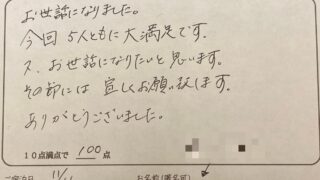 お世話になりました。
今回 5人ともに 大満足です。
又、お世話になりたいと思います。
その節には 宜しくお願い致します。
ありがとうございました。
10点満点で 100 点
お名前(匿名可)